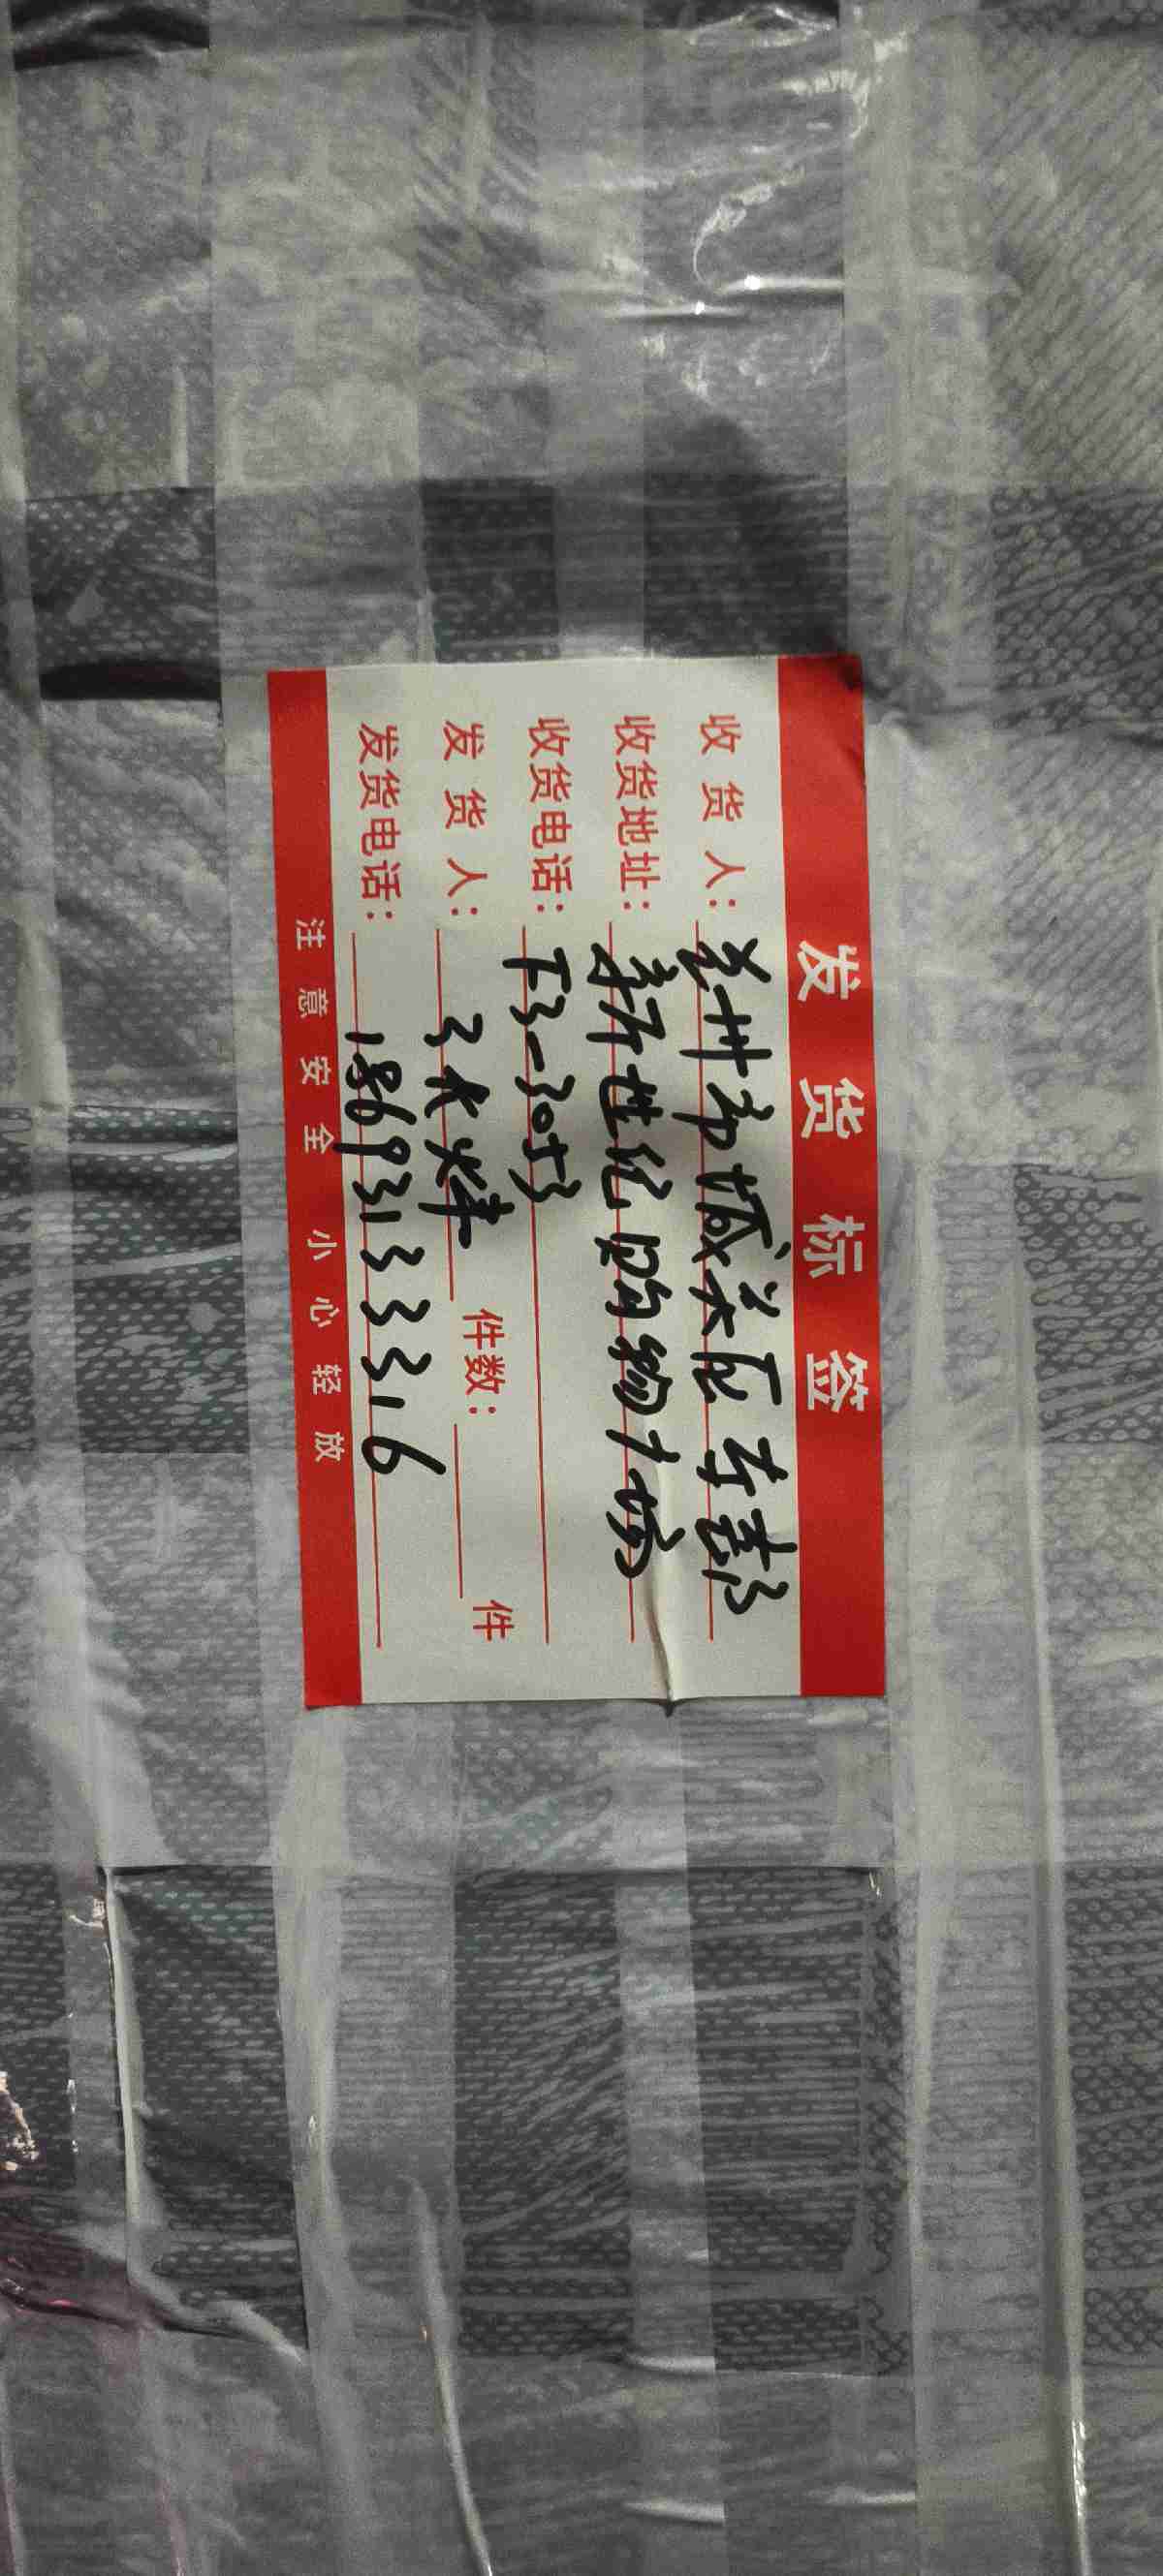 发货标签
收货人：兰州市城关区东部
收货地址：新世纪购物广场
收货电话：F3-3053
发货人：张烨 件数： 件
发货电话：18693133316
注意安全 小心轻放